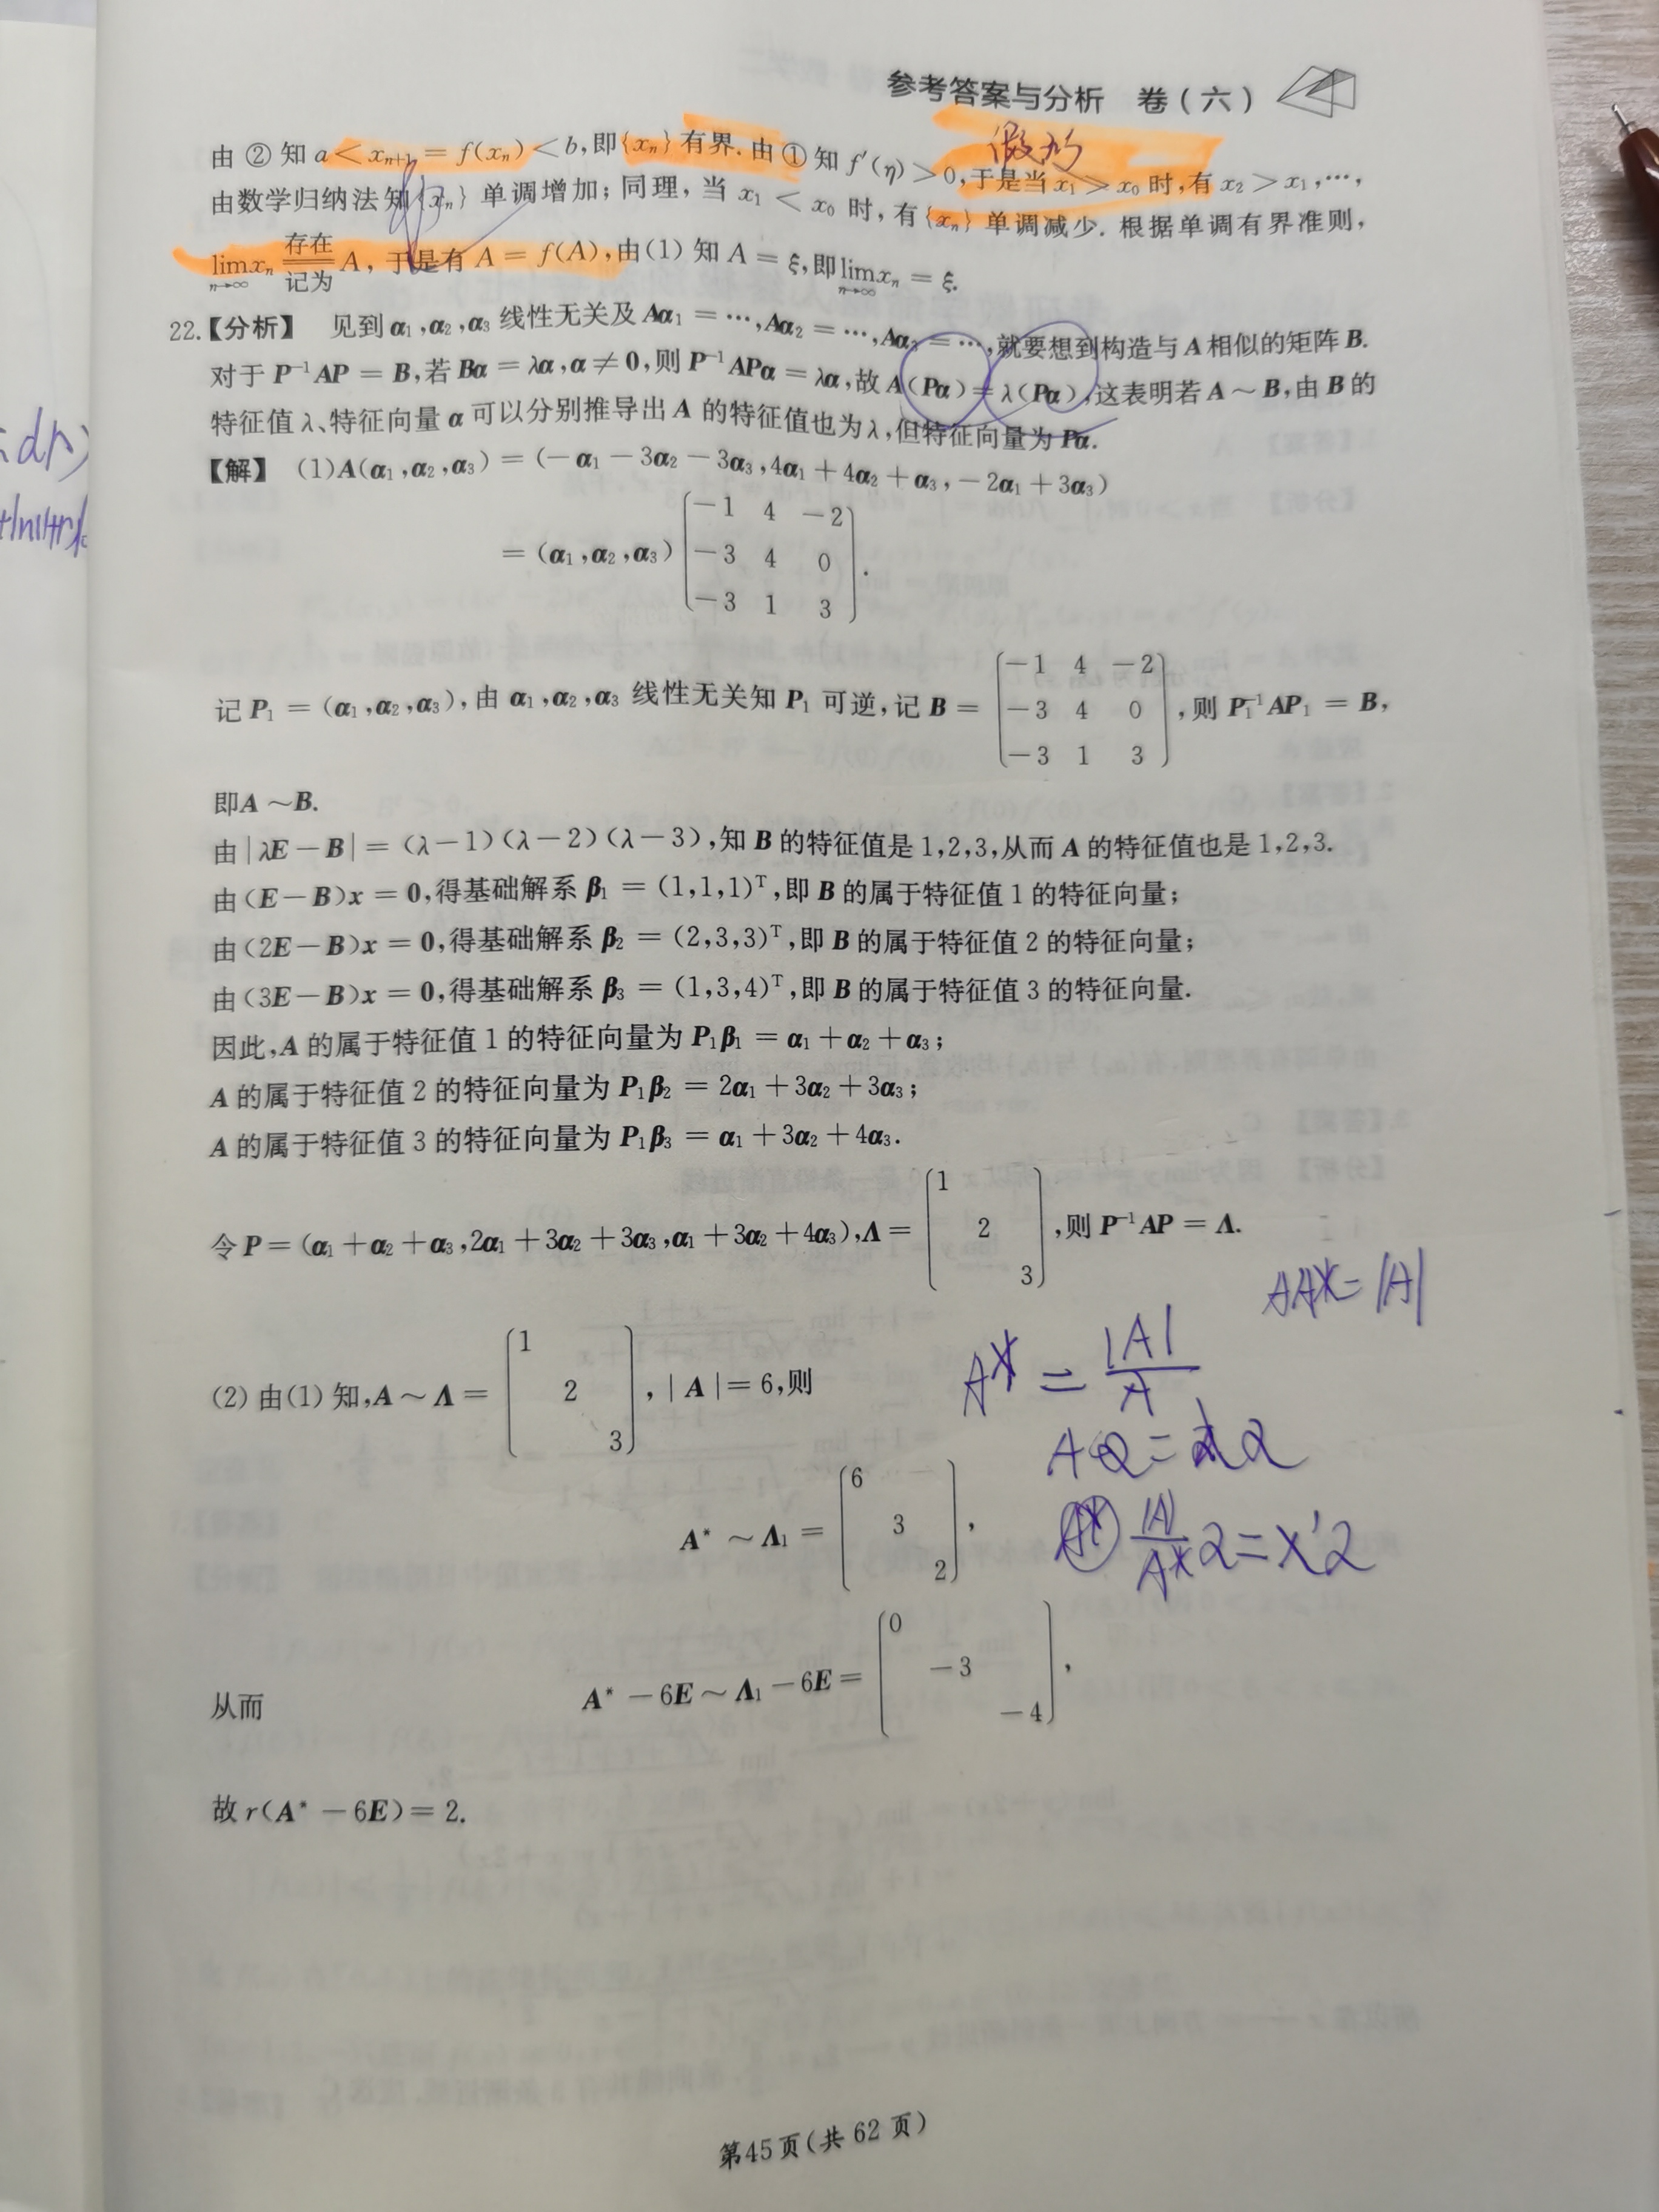 参考答案与分析 卷(六)
由②知 a < x_{n+1} = f(x_n) < b,即{x_n}有界.由①知 f′(η) > 0,于是当 x₁ > x₀ 时,有 x₂ > x₁,…,
由数学归纳法知{x_n}单调增加;同理,当 x₁ < x₀ 时,有{x_n}单调减少.根据单调有界准则,
lim_{n→∞} x_n 存在 记为 A,于是有 A = f(A),由(1)知 A = ξ,即 lim_{n→∞} x_n = ξ.
22.【分析】 见到 α₁,α₂,α₃ 线性无关及 Aα₁ = …,Aα₂ = …,Aα₃ = …,就要想到构造与 A 相似的矩阵 B.
对于 P⁻¹AP = B,若 Bα = λα,α ≠ 0,则 P⁻¹APα = λα,故 A(Pα) = λ(Pα),这表明若 A ~ B,由 B 的
特征值 λ、特征向量 α 可以分别推导出 A 的特征值也为 λ,但特征向量为 Pα.
【解】 (1)A(α₁,α₂,α₃) = (−α₁ − 3α₂ − 3α₃,4α₁ + 4α₂ + α₃,−2α₁ + 3α₃)
−1 4 −2
= (α₁,α₂,α₃) −3 4 0 .
−3 1 3
−1 4 −2
记 P₁ = (α₁,α₂,α₃),由 α₁,α₂,α₃ 线性无关知 P₁ 可逆,记 B = −3 4 0 ,则 P₁⁻¹AP₁ = B,
−3 1 3
即A ~ B.
由 |λE − B| = (λ−1)(λ−2)(λ−3),知 B 的特征值是 1,2,3,从而 A 的特征值也是 1,2,3.
由(E − B)x = 0,得基础解系 β₁ = (1,1,1)ᵀ,即 B 的属于特征值 1 的特征向量;
由(2E − B)x = 0,得基础解系 β₂ = (2,3,3)ᵀ,即 B 的属于特征值 2 的特征向量;
由(3E − B)x = 0,得基础解系 β₃ = (1,3,4)ᵀ,即 B 的属于特征值 3 的特征向量.
因此,A 的属于特征值 1 的特征向量为 P₁β₁ = α₁ + α₂ + α₃;
A 的属于特征值 2 的特征向量为 P₁β₂ = 2α₁ + 3α₂ + 3α₃;
A 的属于特征值 3 的特征向量为 P₁β₃ = α₁ + 3α₂ + 4α₃.
1
令 P = (α₁ + α₂ + α₃,2α₁ + 3α₂ + 3α₃,α₁ + 3α₂ + 4α₃),Λ = 2 ,则 P⁻¹AP = Λ.
3
AA* = |A|
1
(2)由(1)知,A ~ Λ = 2 ,|A| = 6,则
3
A* = |A|/A
6
A* ~ Λ₁ = 3 ,
2
|A|/A* α = λ′α
0
从而 A* − 6E ~ Λ₁ − 6E = −3 ,
−4
故 r(A* − 6E) = 2.
第45页(共 62 页)